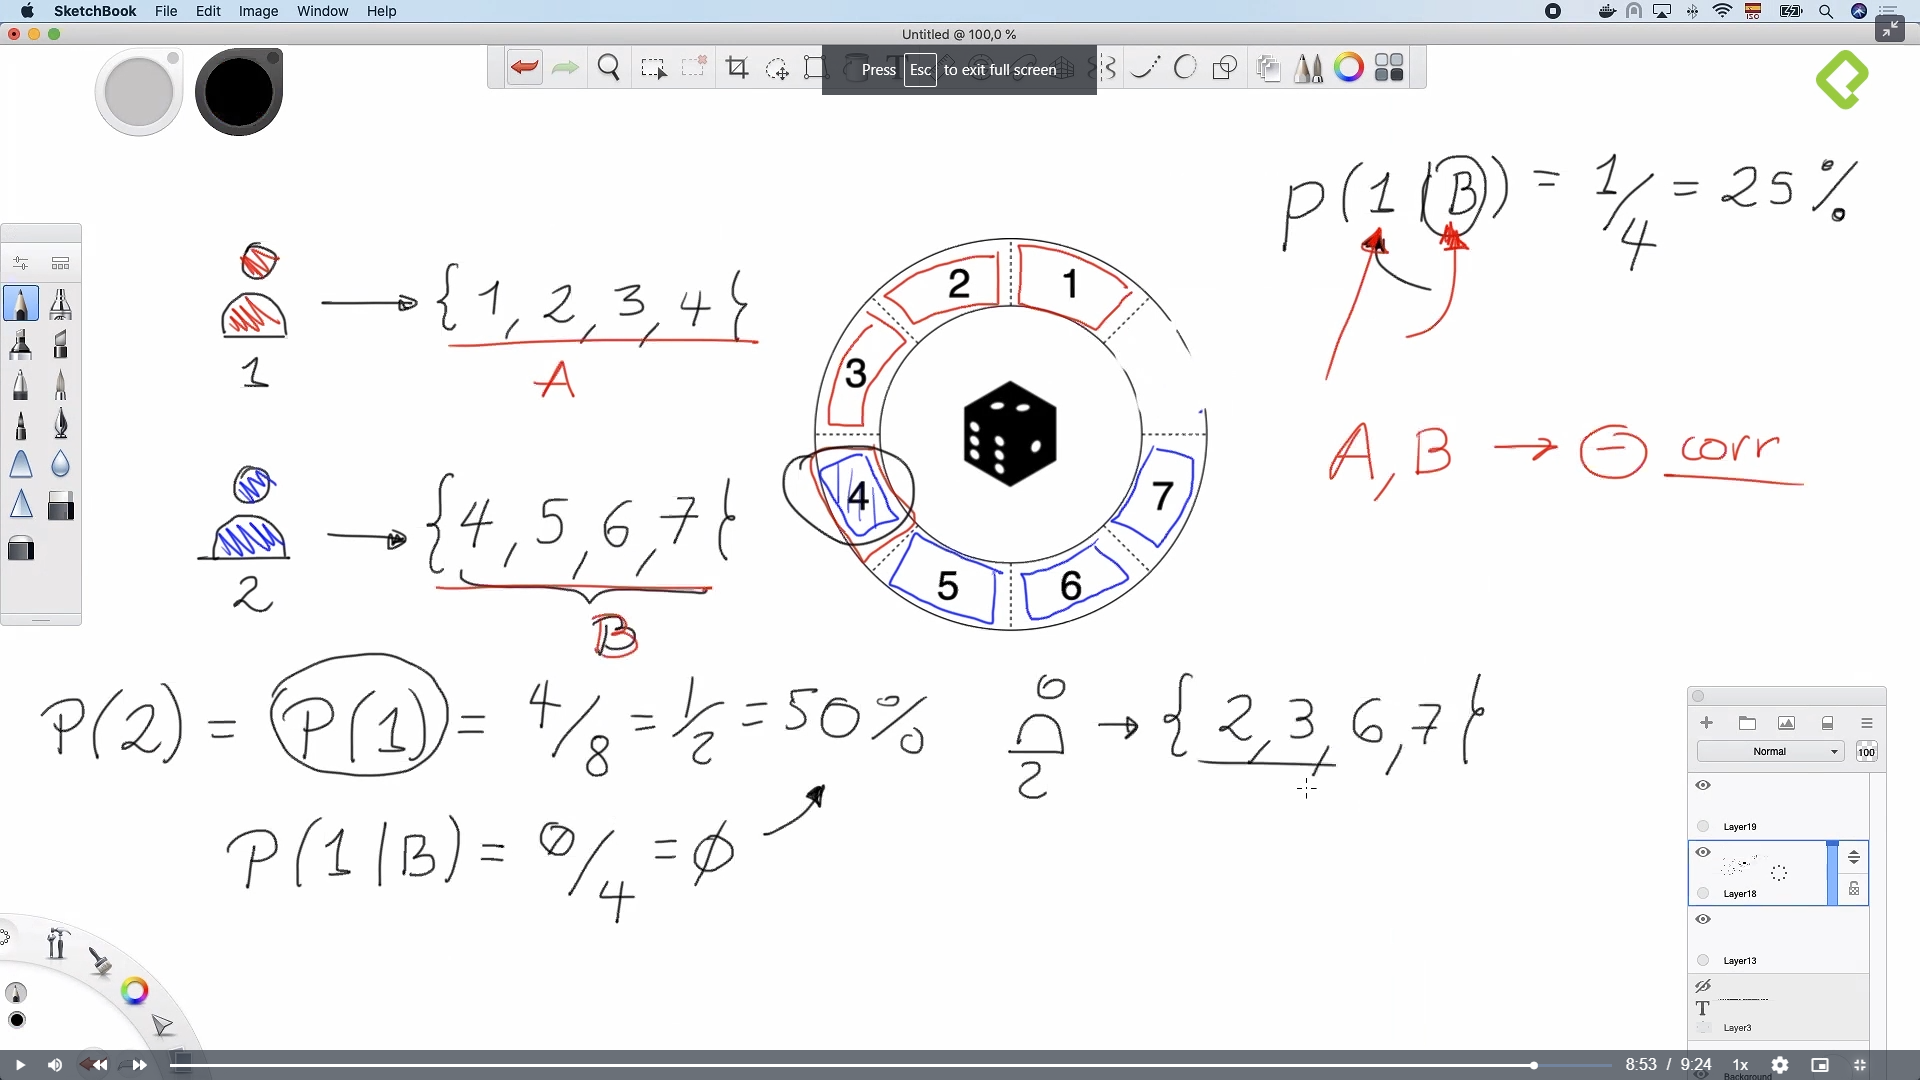 SketchBook File Edit Image Window Help
Untitled @ 100,0 %
Press Esc to exit full screen
P(1|B) = 1/4 = 25%
1 → {1, 2, 3, 4}
A
2 → {4, 5, 6, 7}
B
1
2
3
4
5
6
7
A, B → ⊖ corr
P(2) = P(1) = 4/8 = 1/2 = 50%
2 → {2, 3, 6, 7}
P(1|B) = 0/4 = ∅
Normal 100
Layer19
Layer18
Layer13
T
Layer3
Background
8:53 / 9:24 1x